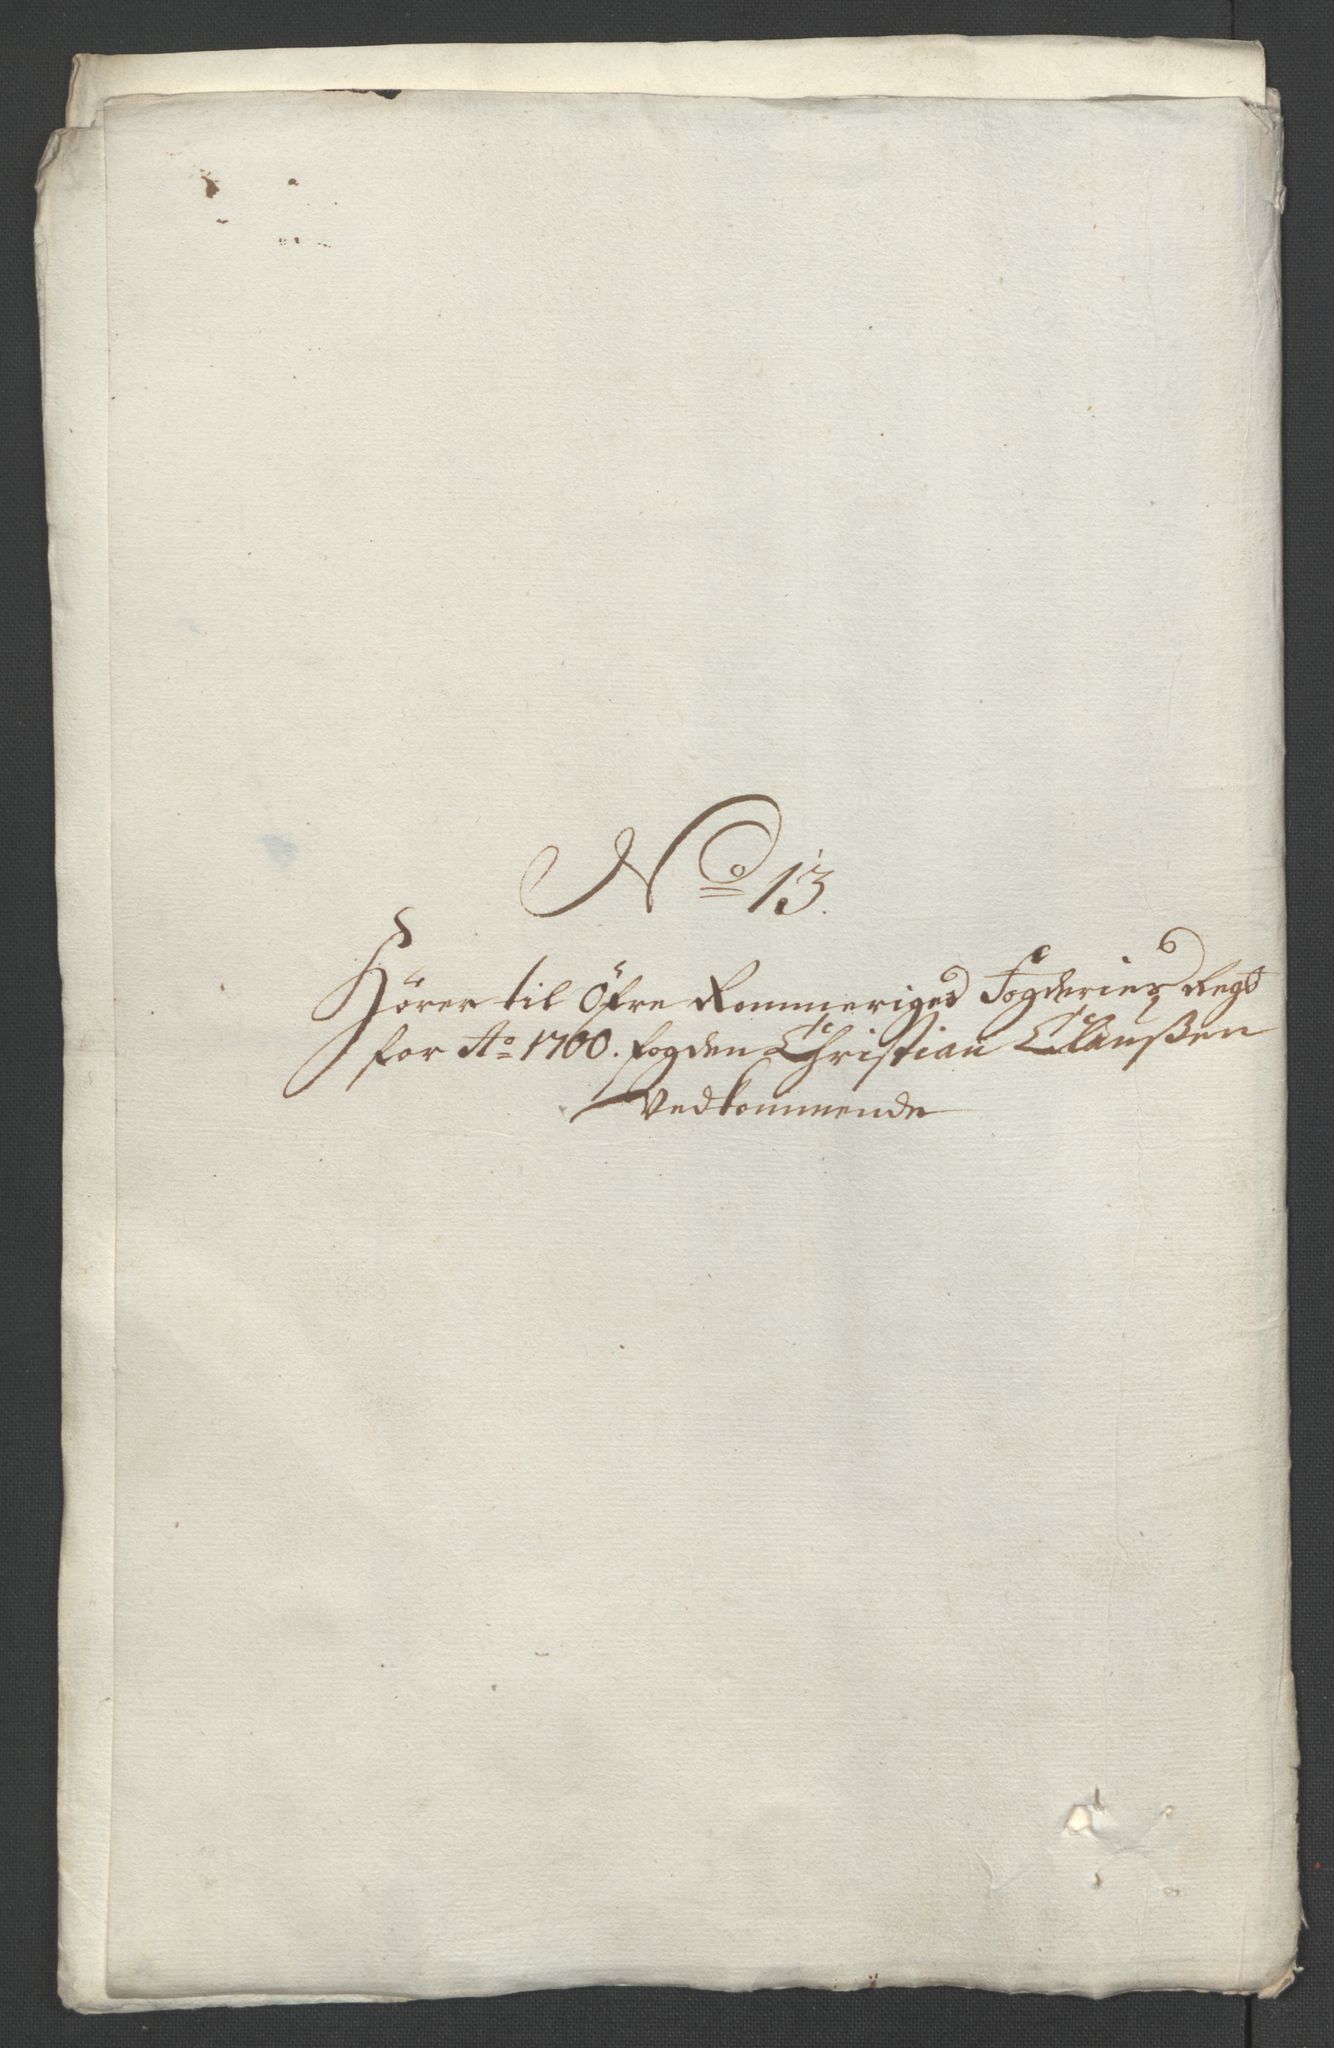 No 13.
Hörer til Öfre Rommeriges Fogderies Regb
for Ao 1700. fogden Christian Claußen
Vedkommende